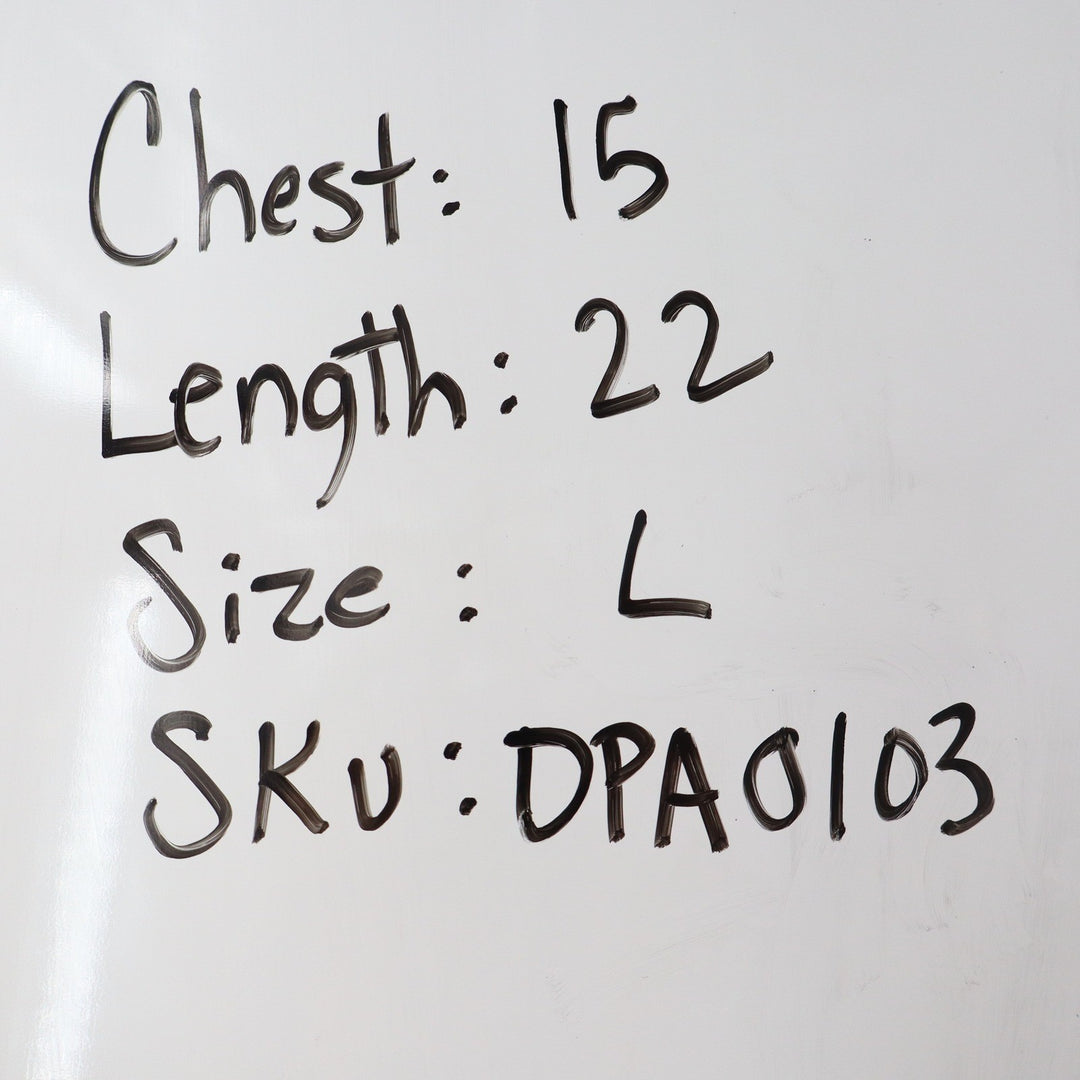 Chest: 15
Length: 22
Size: L
SKU: DPA0103